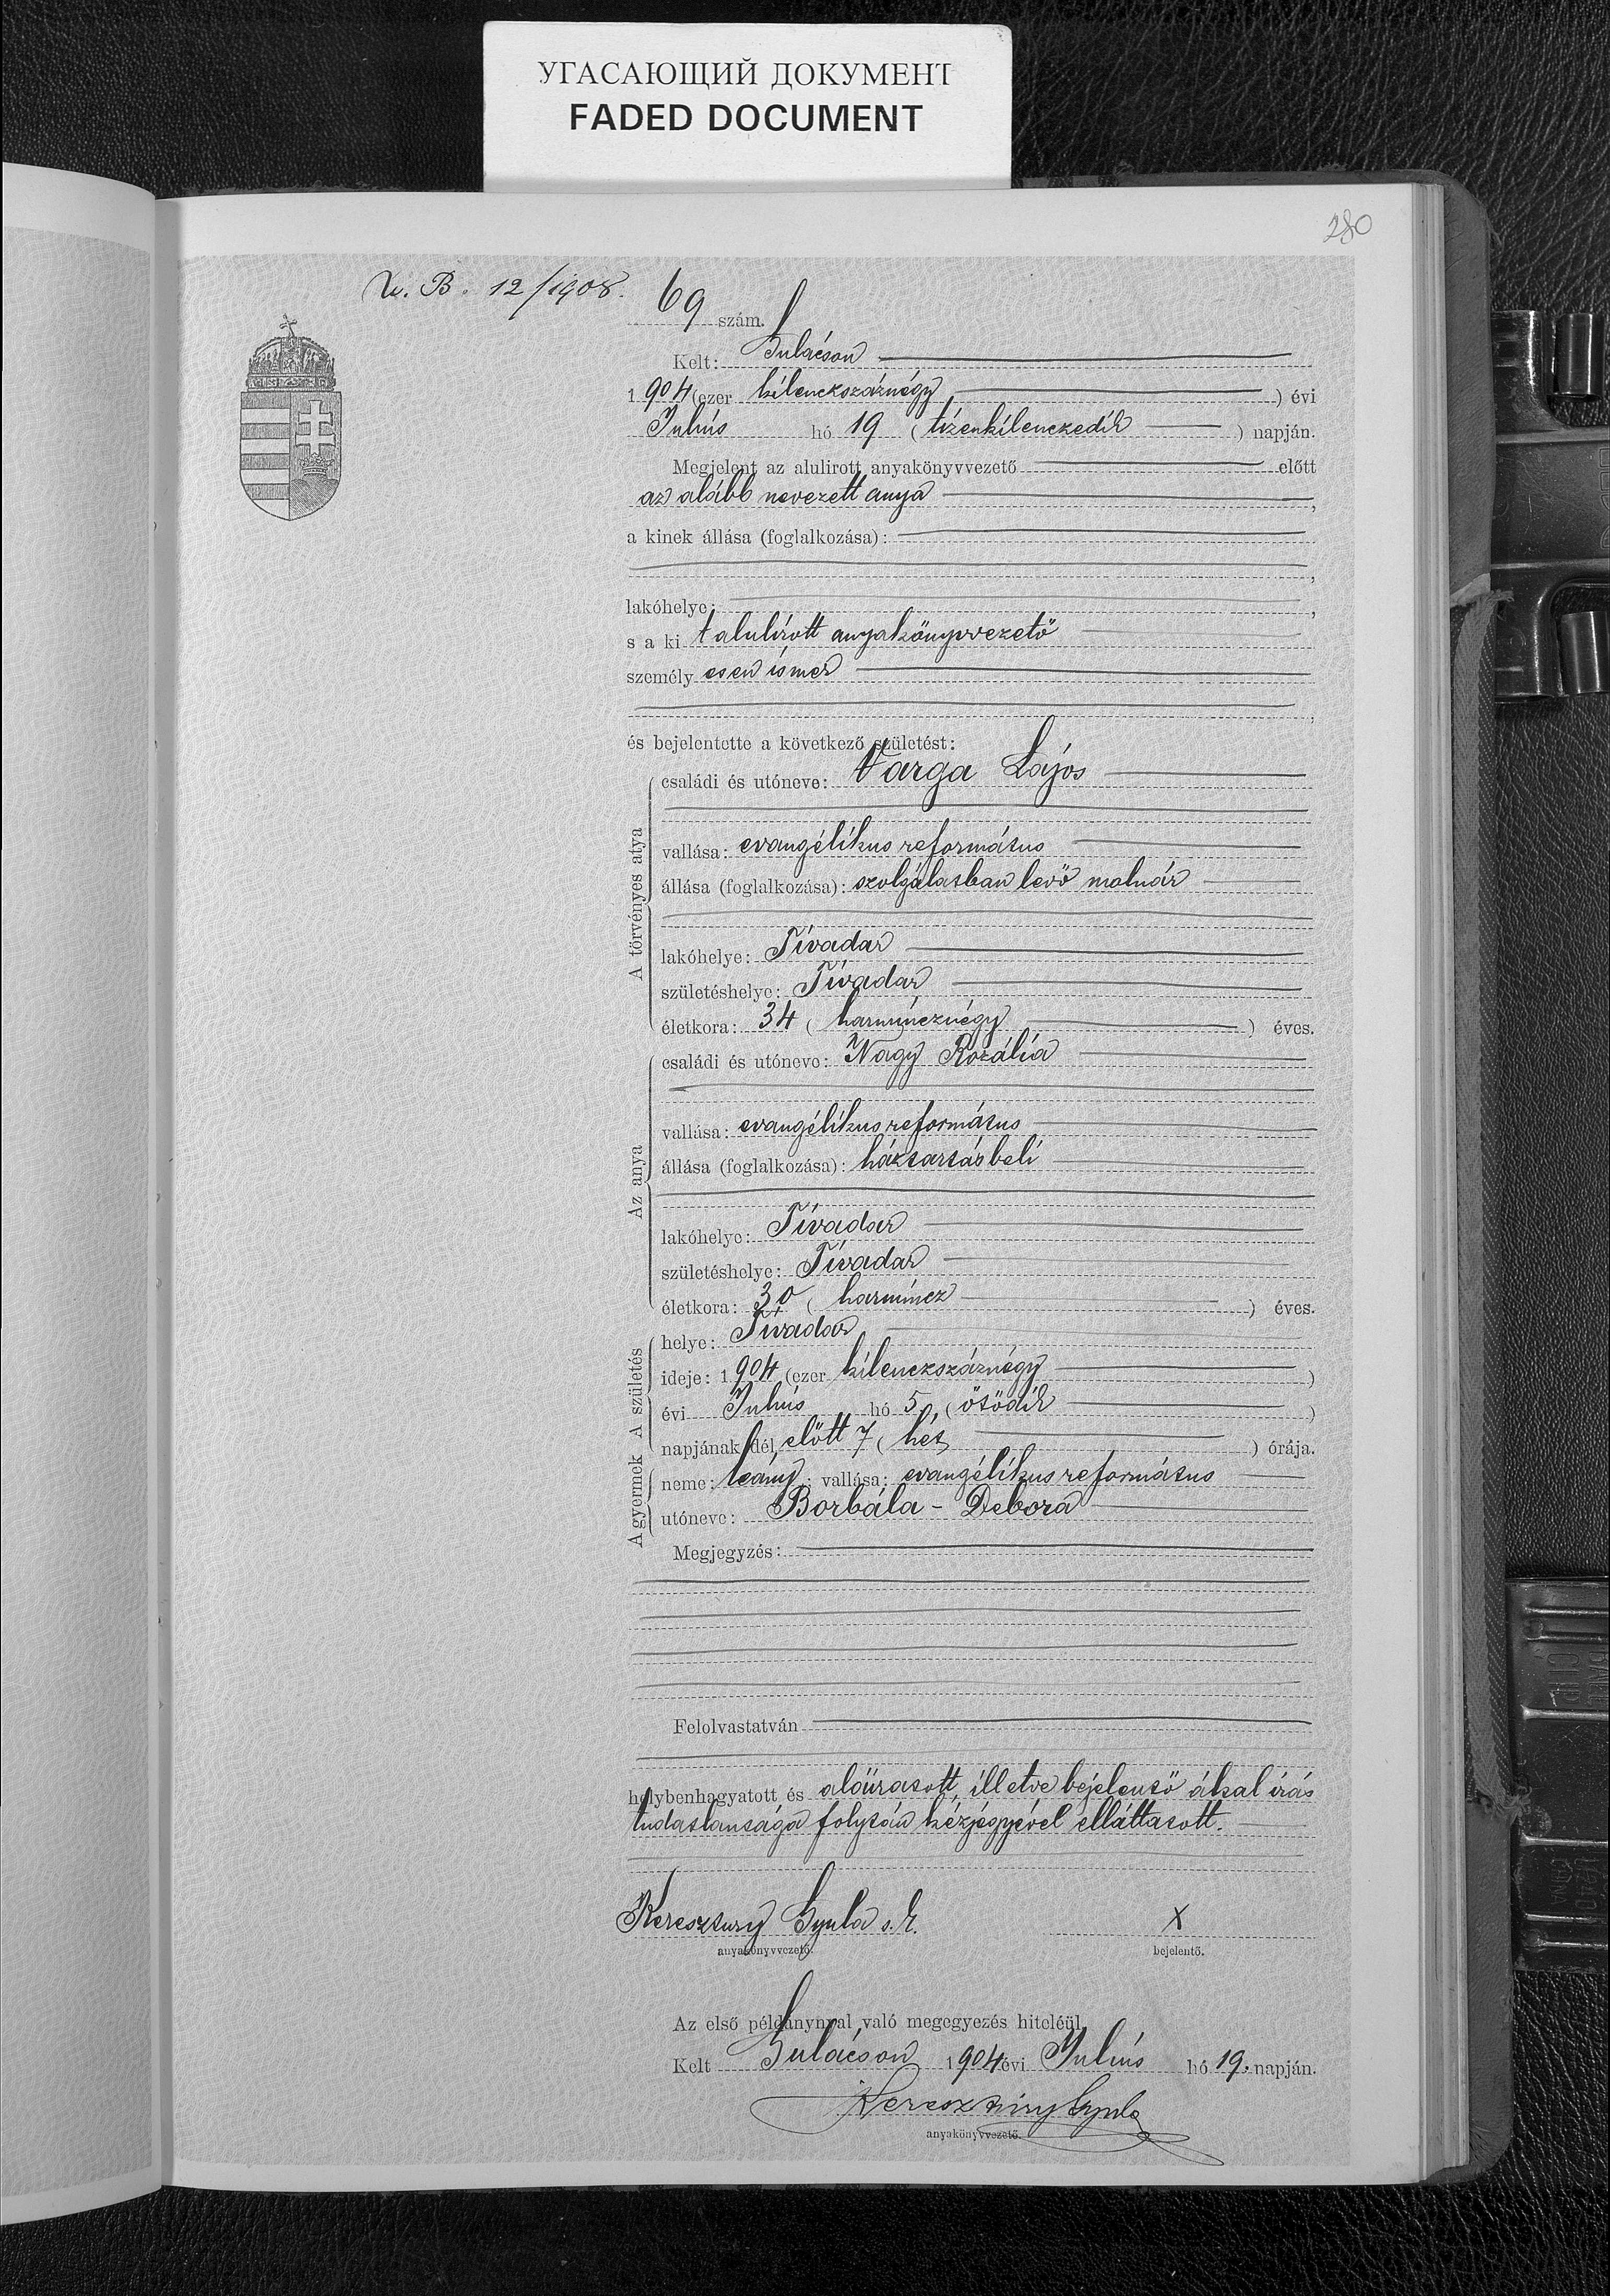 УГАСАЮЩИЙ ДОКУМЕНТ
FADED DOCUMENT
280
B. 12/1908.
69 szám.
Kelt: Gulácson
1904 (ezer kilenczszáznégy) évi
Július hó 19 (tizenkilenczedik) napján.
Megjelent az alulirott anyakönyvvezető előtt
az alább nevezett anya,
a kinek állása (foglalkozása):
,
lakóhelye: ,
s a ki t alulírott anyakönyvvezető
személy esen ismer
,
és bejelentette a következő születést:
A törvényes atya
családi és utóneve: Varga Lajos
vallása: evangélikus református
állása (foglalkozása): szolgálatban levő molnár
lakóhelye: Tivadar
születéshelye: Tivadar
életkora: 34 (harmincznégy) éves.
Az anya
családi és utóneve: Nagy Rozália
vallása: evangélikus református
állása (foglalkozása): háztartásbeli
lakóhelye: Tivadar
születéshelye: Tivadar
életkora: 30 (harmincz) éves.
A születés
helye: Tivadar
ideje: 1904 (ezer kilenczszáznégy)
évi Július hó 5 (ötödik)
napjának dél előtt 7 (hét) órája.
A gyermek
neme: leány; vallása: evangélikus református
utóneve: Borbála - Debora
Megjegyzés:
Felolvastatván
helybenhagyatott és aláiratott, illetve bejelentő által írás
tudatlansága folytán kézjegyével elláttatott.
Keresztury Gyula s.k. X
anyakönyvvezető. bejelentő.
Az első példánynyal való megegyezés hiteléül
Kelt Gulácson 1904 évi Július hó 19. napján.
Keresztury Gyula
anyakönyvvezető.